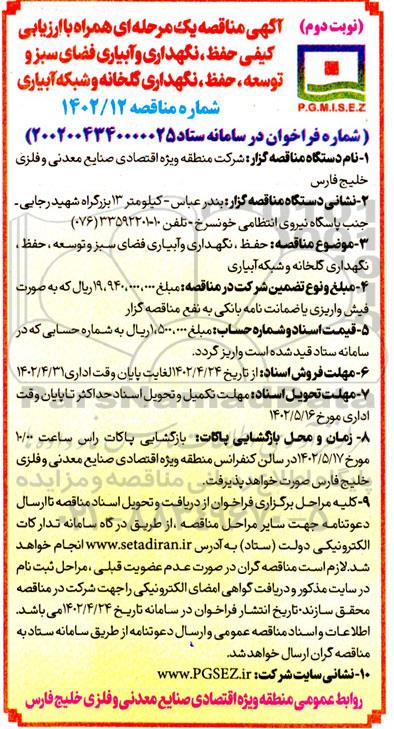 (نوبت دوم)
آگهی مناقصه یک مرحله ای همراه با ارزیابی
کیفی حفظ ، نگهداری و آبیاری فضای سبز و
توسعه ، حفظ ، نگهداری گلخانه و شبکه آبیاری
P.G.M.I.S.E.Z
شماره مناقصه ۱۴۰۲/۱۲
( شماره فراخوان در سامانه ستاد ۲۰۰۲۰۰۴۳۴۰۰۰۰۰۲۵)
۱-نام دستگاه مناقصه گزار: شرکت منطقه ویژه اقتصادی صنایع معدنی و فلزی
خلیج فارس
۲-نشانی دستگاه مناقصه گزار: بندر عباس - کیلومتر ۱۳ بزرگراه شهید رجایی -
جنب پاسگاه نیروی انتظامی خونسرخ - تلفن ۱۰-۳۳۵۹۲۲۰۱ (۰۷۶)
۳-موضوع مناقصه: حفظ ، نگهداری وآبیاری فضای سبز و توسعه ، حفظ ،
نگهداری گلخانه و شبکه آبیاری
۴-مبلغ و نوع تضمین شرکت در مناقصه: مبلغ ۱۹،۹۴۰،۰۰۰،۰۰۰ ریال که به صورت
فیش واریزی یا ضمانت نامه بانکی به نفع مناقصه گزار
۵-قیمت اسناد و شماره حساب: مبلغ ۱،۵۰۰،۰۰۰ریال به شماره حسابی که در
سامانه ستاد قید شده است واریز گردد.
۶-مهلت فروش اسناد: از تاریخ ۱۴۰۲/۴/۲۴ لغایت پایان وقت اداری ۱۴۰۲/۴/۳۱
۷-مهلت تحویل اسناد: مهلت تکمیل و تحویل اسناد حداکثر تا پایان وقت
اداری مورخ ۱۴۰۲/۵/۱۶
۸- زمان و محل بازگشایی پاکات: بازگشایی پاکات راس ساعت ۱۰/۰۰
مورخ ۱۴۰۲/۵/۱۷در سالن کنفرانس منطقه ویژه اقتصادی صنایع معدنی و فلزی
خلیج فارس صورت خواهد پذیرفت.
۹-کلیه مراحل برگزاری فراخوان از دریافت و تحویل اسناد مناقصه تا ارسال
دعوتنامه جهت سایر مراحل مناقصه ،از طریق درگاه سامانه تدارکات
الکترونیکی دولت (ستاد) به آدرس www.setadiran.ir انجام خواهد
شد.لازم است مناقصه گران در صورت عدم عضویت قبلی ، مراحل ثبت نام
در سایت مذکور و دریافت گواهی امضای الکترونیکی را جهت شرکت در مناقصه
محقق سازند؛تاریخ انتشار فراخوان در سامانه تاریخ ۱۴۰۲/۴/۲۴ می باشد.
اطلاعات و اسناد مناقصه عمومی و ارسال دعوتنامه از طریق سامانه ستاد به
مناقصه گران ارسال خواهد شد.
۱۰-نشانی سایت شرکت: www.PGSEZ.ir
روابط عمومی منطقه ویژه اقتصادی صنایع معدنی و فلزی خلیج فارس